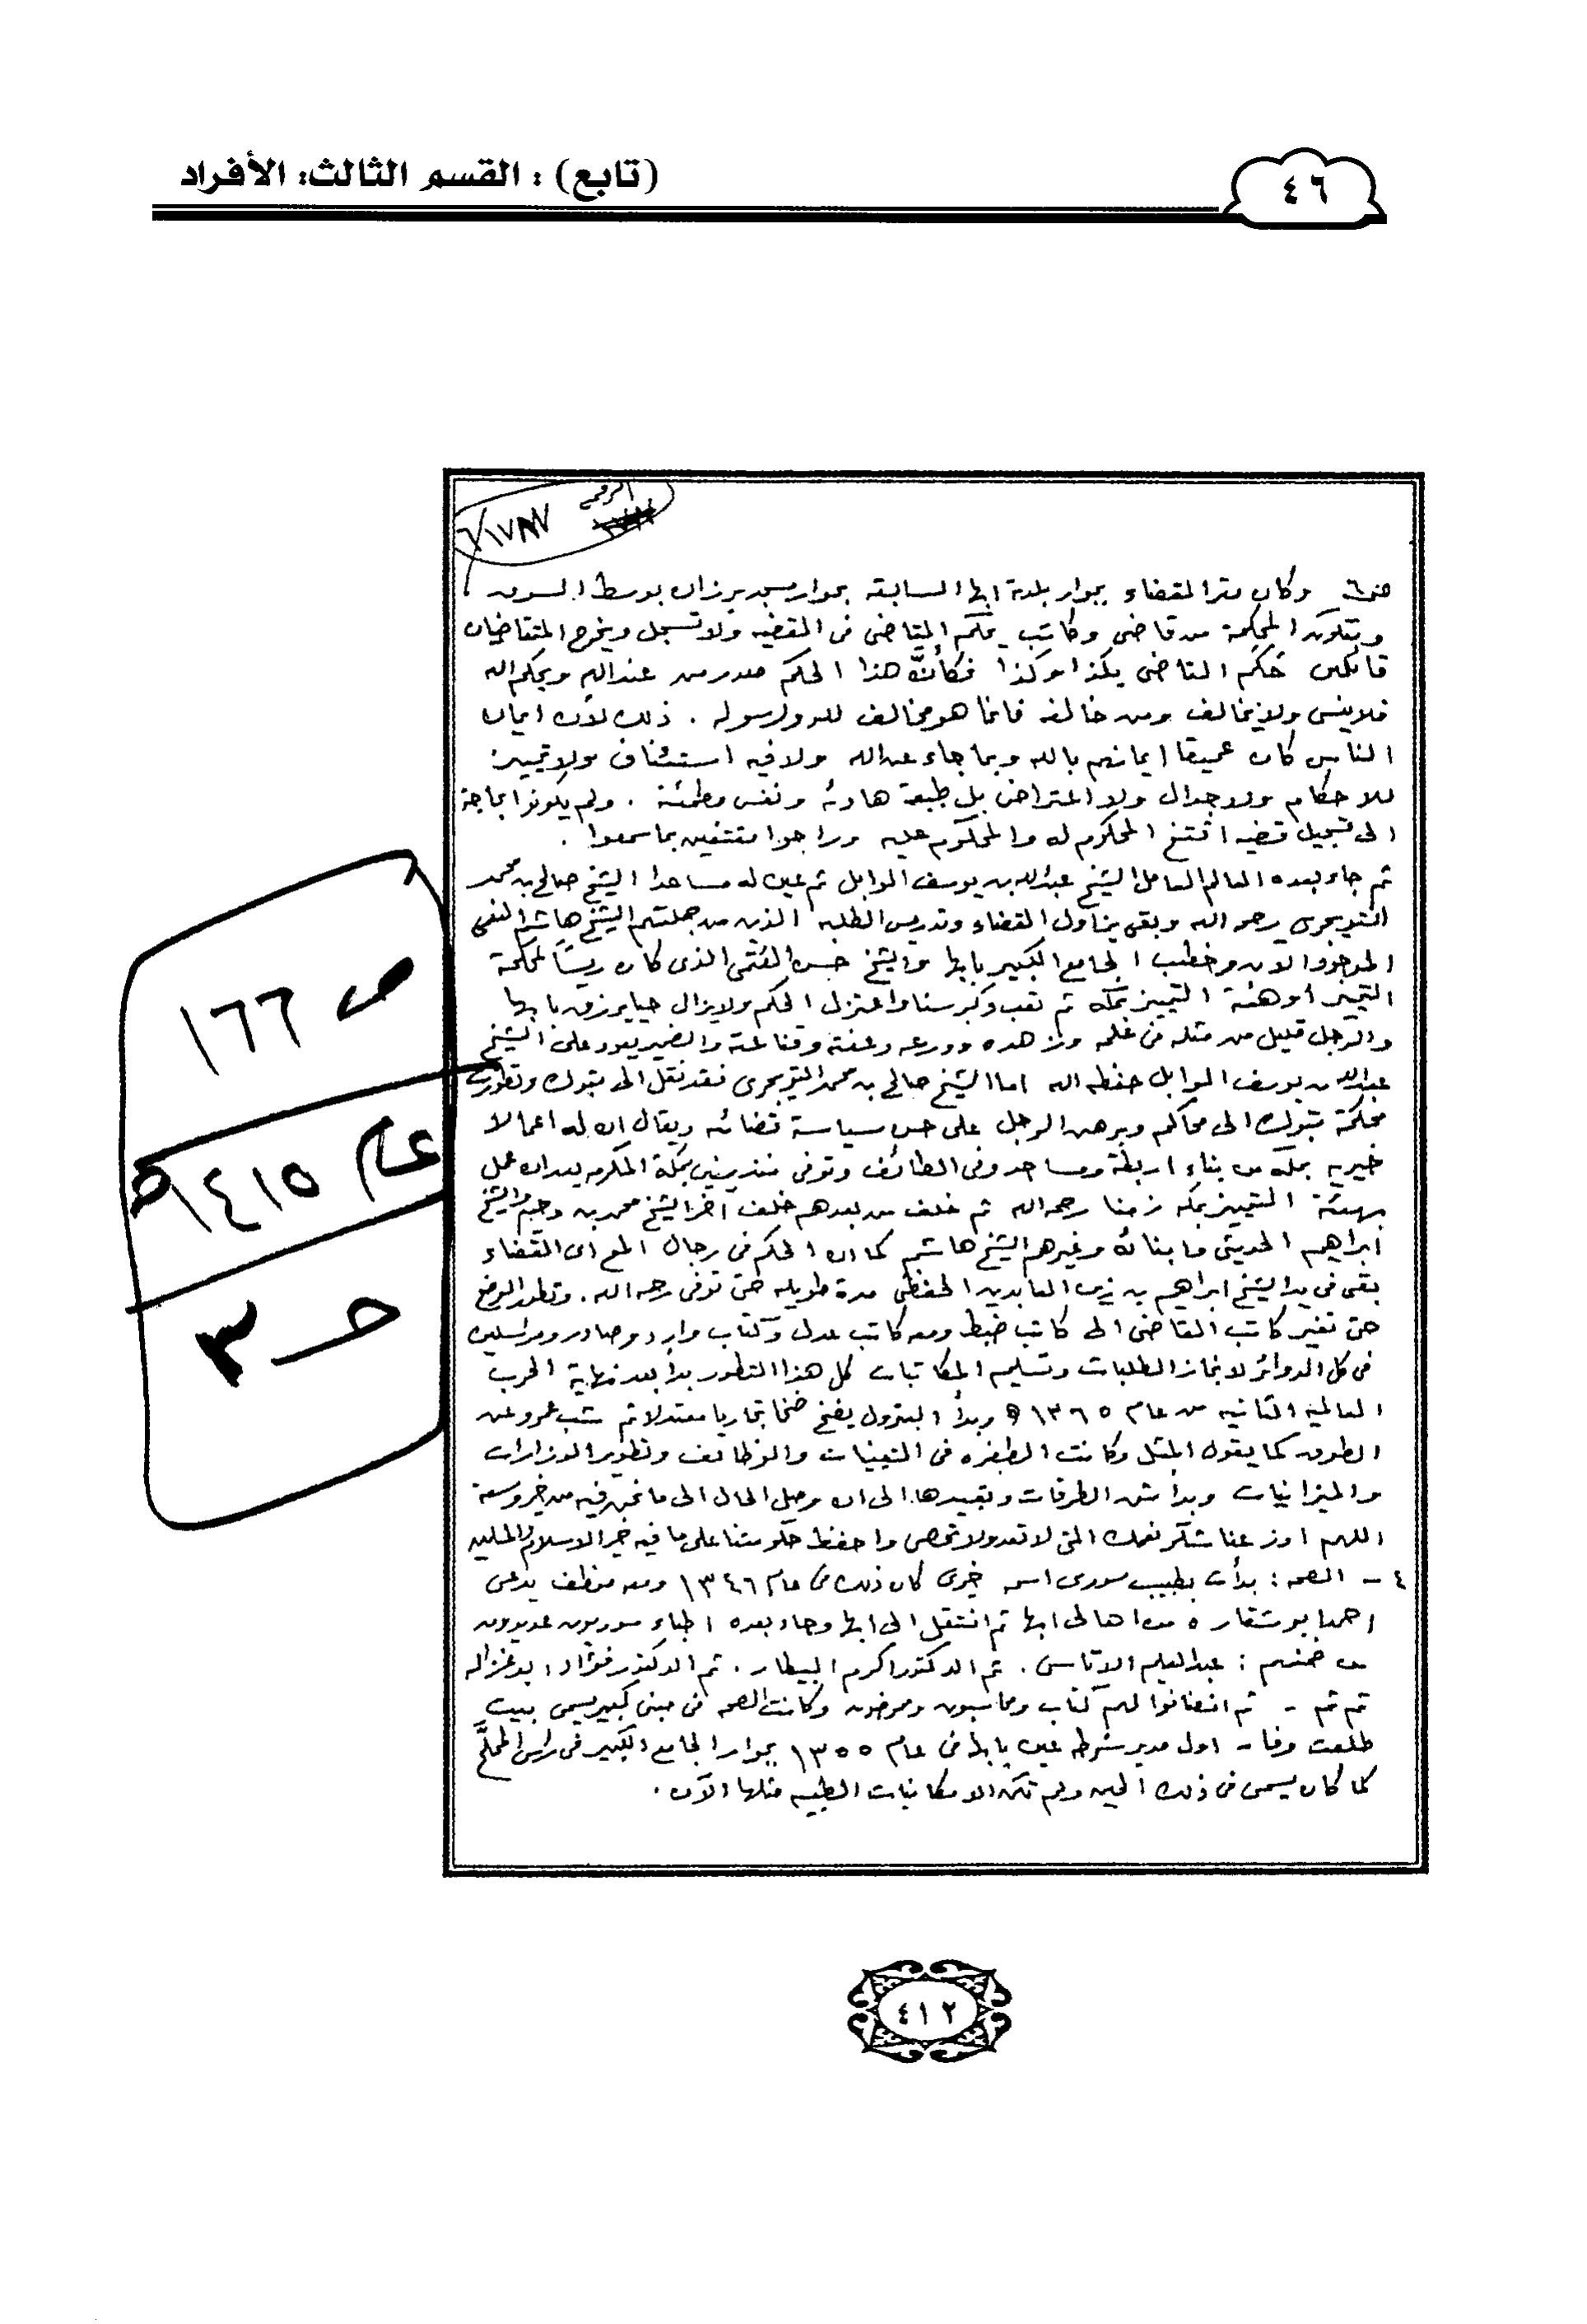 (تابع) : القسم الثالث: الأفراد
٤٦
الرقم
٦/١٧٨٧
ص٦ وكان مقر القضاء بجوار بلدية ابها السابقة بجوار مسجد برزان بوسط السوق
وتتكون المحكمة من قاضي وكاتب يحكم القاضي في القضيه ولا تسجل ويخرج المتقاضيان
قائلين حَكَم القاضى بكذا وكذا فكأنَّ هذا الحكم صدر من عند الله ويحكم الله
فلا ينسى ولا يخالف ومن خالفه فانما هو مخالف لله ولرسوله . ذلك لأن ايمان
الناس كان عميقا ايمانهم بالله وبما جاء عن الله ولا فيه استئناف ولا تمييز
للاحكام ولا جدال ولا اعتراض بل طبيعة هادئه ونفس مطمئنة . ولم يكونوا بحاجة
الى تسجيل قضيه اقتنع المحكوم له والمحكوم عليه وراحوا مقتنعين بما سمعوا .
ثم جاء بعده العالم العامل الشيخ عبدالله بن يوسف الوابل ثم عين له مساعدا الشيخ صالح بن محمد
التويجرى رحمه الله وبقى يزاول القضاء وتدريس الطلبه الذين من جملتهم الشيخ هاشم النعمى
الموجود الان وخطيب الجامع الكبير بابها والشيخ حسن العُتمى الذى كان رئيسًا لمحكمة
التمييز أو هئية التمييز بمكه ثم تعب وكبر سنا واعتزل الحكم ولا يزال حيا يرزق بابها
والرجل قليل من مثله فى علمه وزهده وورعه وعفته وقناعته والضمير يعود على الشيخ
عبدالله بن يوسف الوابل حفظه الله اما الشيخ صالح بن محمد التويجرى فقد نقل الى تبوك وتطورت
محكمة تبوك الى محاكم وبرهن الرجل على حسن سياسة قضائه ويقال ان له اعمالا
خيريه بمكه من بناء اربطة ومساجد وفى الطائف وتوفى منذ سنين بمكة المكرمه بعد ان عمل
بهيئة التمييز بمكه زمنا رحمه الله ثم خلف من بعدهم خلف آخر الشيخ محمد بن وحبر والشيخ
ابراهيم الحديثى وابنائه وغيرهم الشيخ هاشم كما ان الحكم فى رجال المع اى القضاء
بقى فى يد الشيخ ابراهيم بن زين العابدين الحفظى مدة طويله حتى توفى رحمه الله . وتطور الوضع
حتى تغير كاتب القاضى الى كاتب ضبط ومعه كاتب عدل وكتاب وارد وصادر ومراسلين
فى كل الدوائر لانجاز الطلبات وتسليم المكاتبات كل هذا التطور بدأ بعد نهاية الحرب
العالميه الثانيه من عام ١٣٦٥ ه وبدأ البترول يضخ ضخا تجاريا معتدلا ثم شب عمرو عن
الطوق كما يقول المثل وكانت الطفره فى التعينات والوظائف وتطوير الوزارات
والميزانيات وبدأ شق الطرقات وتعبيدها الى ان وصل الحال الى ما نحن فيه من خير وسعة
اللهم اوزعنا شكر نعمك التى لا تعد ولا تحصى واحفظ حكومتنا على ما فيه خير الاسلام والمسلمين
٤ - الصحه : بدأت بطبيب سورى اسمه خيرى كان ذلك فى عام ١٣٤٦ ومعه موظف يدعى
احمد ابو شقاره من اهالى ابها ثم انتقل الى ابها وجاء بعده اطباء سوريون عديدون
من ضمنهم : عبدالعليم الاتاسى . ثم الدكتور اكرم البيطار . ثم الدكتور فؤاد ابو غزاله
ثم ثم - ثم انضافوا لهم كتاب ومحاسبون وممرضون وكانت الصحه فى مبنى كبير يسمى بيت
طلعت وفا - اول مدير شرطه عين بابها فى عام ١٣٥٥ بجوار الجامع الكبير فى راس الملحَّ
كما كان يسمى فى ذلك الحين ولم تكن الامكانيات الطبيه مثلها الآن .
ص ١٦٦
عام ١٤١٥ه
حـ ٣
٤١٢